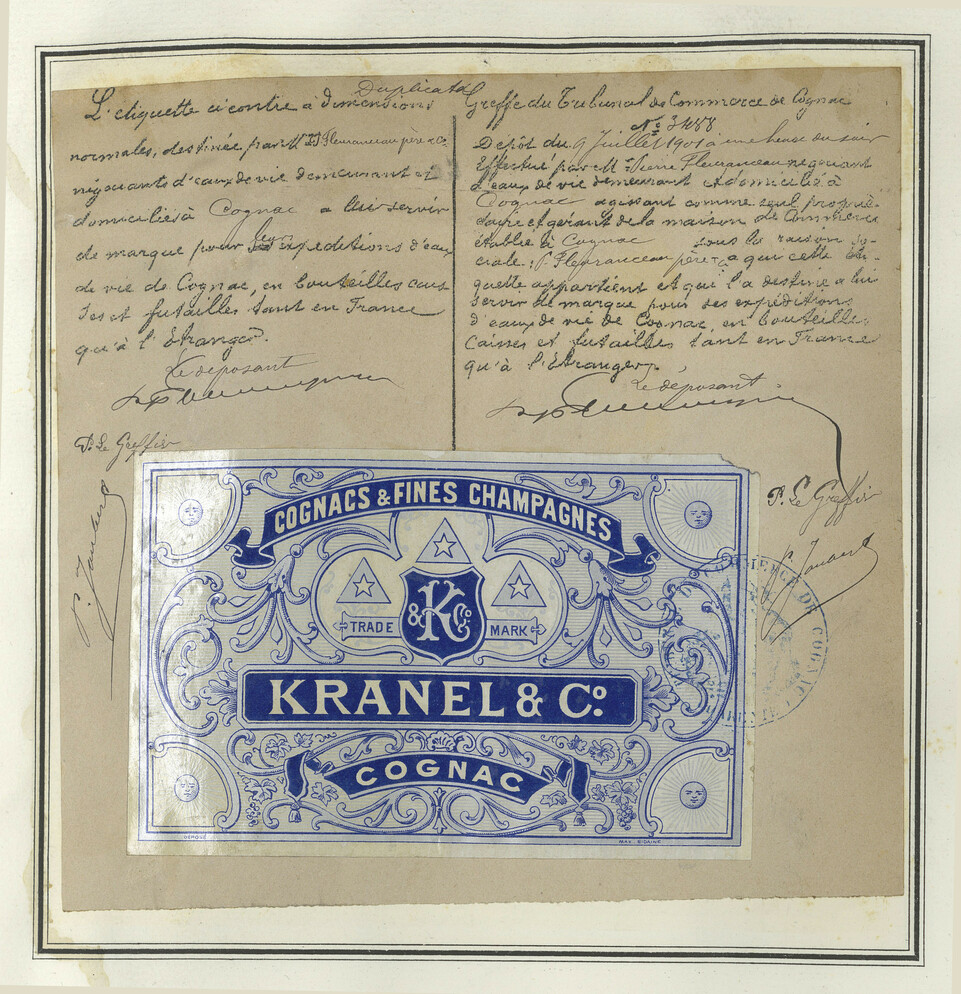 Duplicata
L'etiquette ci contre à dimensions
normales, destinée, par M.rs P. Fleuranceau père & Co.
négociants d'eaux de vie demeurant et
domiciliés à Cognac a leur servir
de marque pour leurs expeditions d'eaux
de vie de Cognac, en bouteilles cais
ses et futailles tant en France
qu'à l'Etranger.
Le déposant
P. Le Greffier
Greffe du Tribunal de Commerce de Cognac
No 3488
Dépôt du 9 Juillet 1901 à une heure du soir
Effectué par M. Pierre Fleuranceau négociant
d'eaux de vie demeurant et domicilié à
Cognac agissant comme seul proprié-
taire et gérant de la maison de Commerce
établie à Cognac sous la raison so-
ciale: P. Fleuranceau père & Co a qui cette éti-
quette appartient et qui l'a destinée a lui
servir de marque pour ses expéditions
d'eaux de vie de Cognac, en bouteilles
caisses et futailles tant en France
qu'à l'Etranger.
Le déposant
P. Le Greffier
COGNACS & FINES CHAMPAGNES
K & Co.
TRADE MARK
KRANEL & Co.
COGNAC
DÉPOSÉ
COMMERCE DE COGNAC